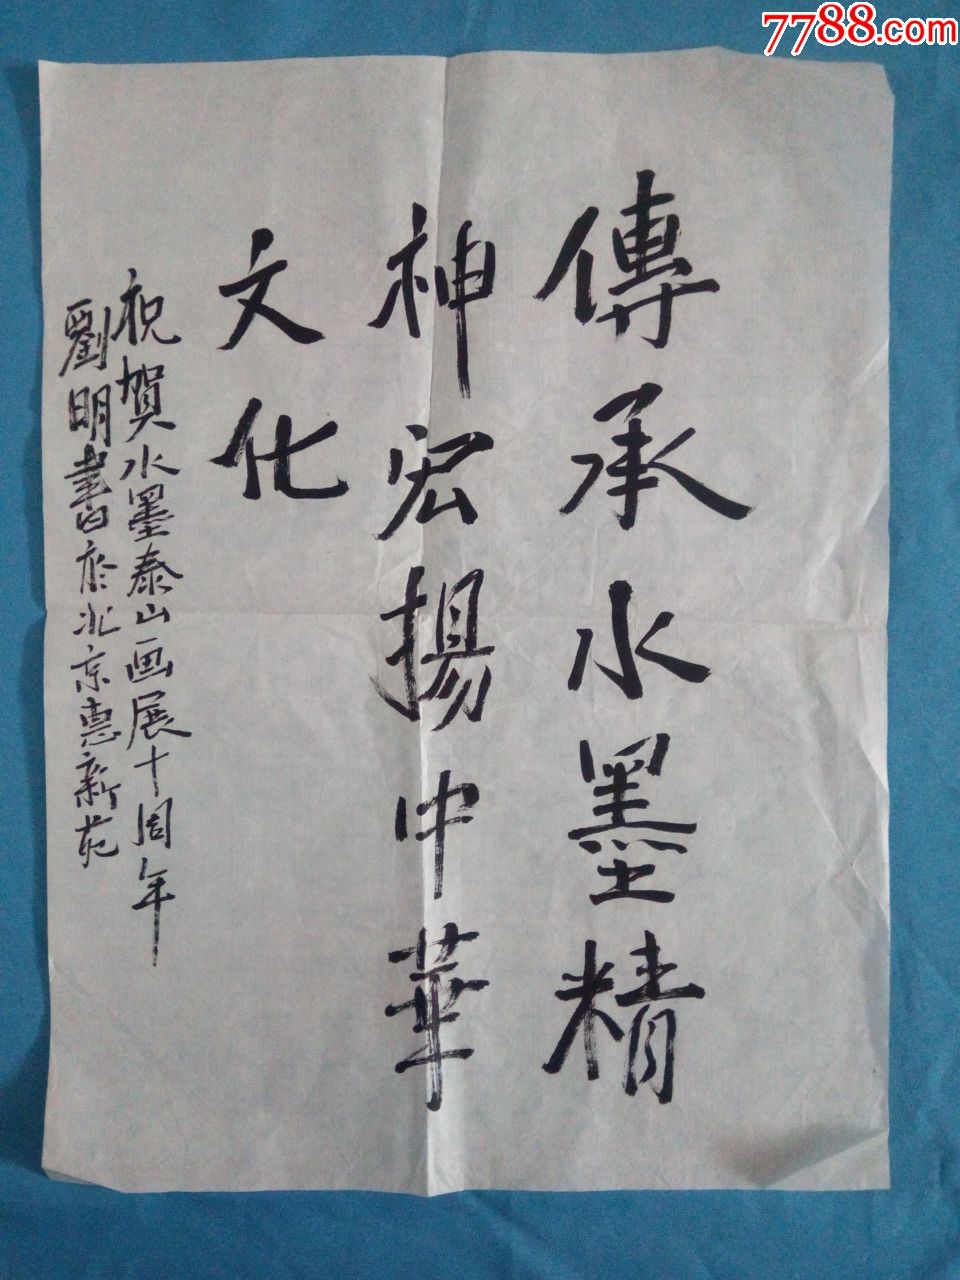 7788.com
傳承水墨精
神宏揚中華
文化
祝賀水墨泰山画展十周年
劉明書於北京惠新苑